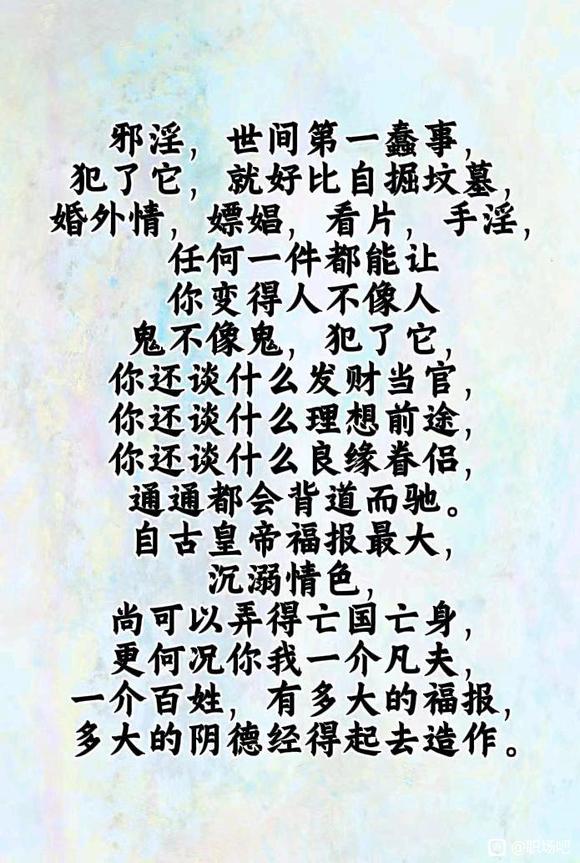 邪淫，世间第一蠢事，
犯了它，就好比自掘坟墓，
婚外情，嫖娼，看片，手淫，
任何一件都能让
你变得人不像人
鬼不像鬼，犯了它，
你还谈什么发财当官，
你还谈什么理想前途，
你还谈什么良缘眷侣，
通通都会背道而驰。
自古皇帝福报最大，
沉溺情色，
尚可以弄得亡国亡身，
更何况你我一介凡夫，
一介百姓，有多大的福报，
多大的阴德经得起去造作。
@职场吧